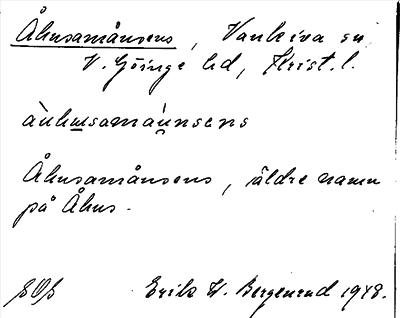 Åhusamånsens, Vankiva sn
V. Göinge hd, Krist. l.
àuhusamàunsens
Åhusamånsens, äldre namn
på Åhus.
Erik W. Bergenrud 1948.